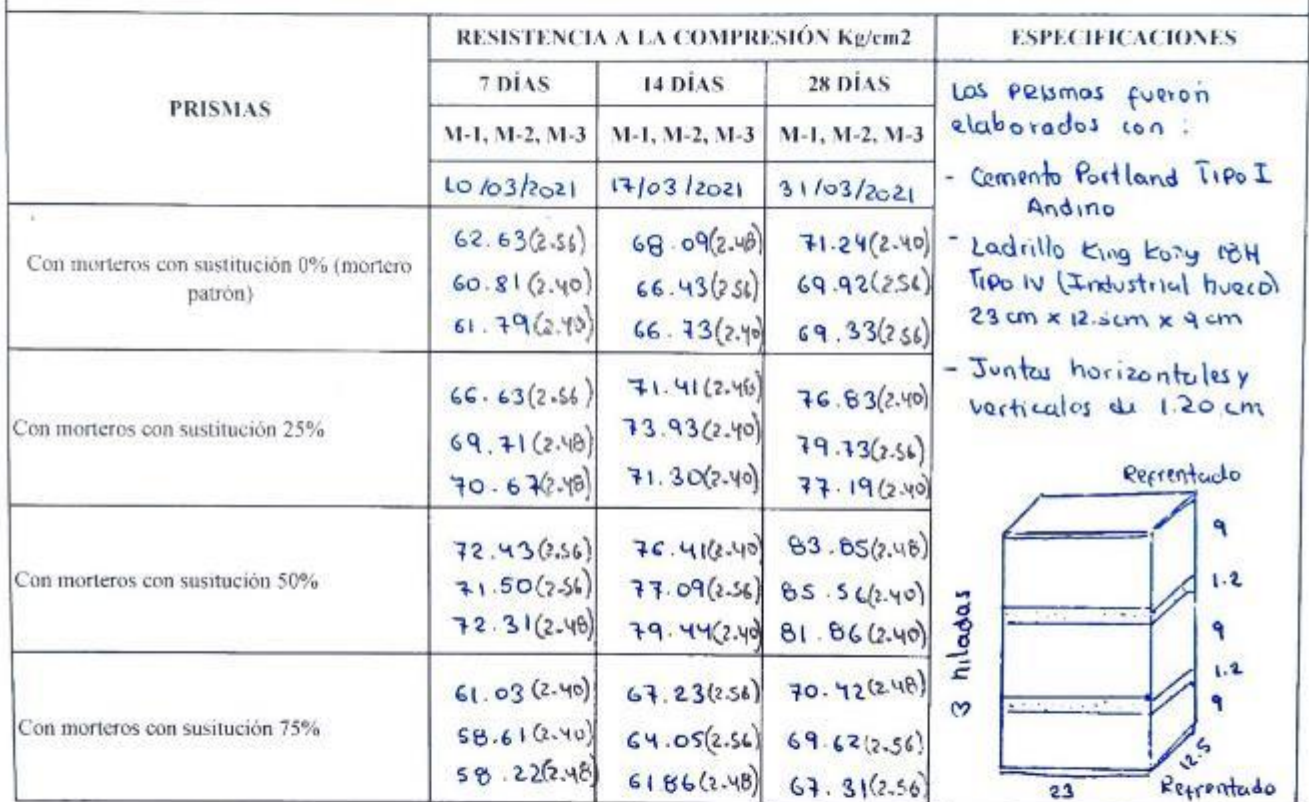 RESISTENCIA A LA COMPRESIÓN Kg/cm2
ESPECIFICACIONES
PRISMAS
7 DÍAS
14 DÍAS
28 DÍAS
M-1, M-2, M-3
M-1, M-2, M-3
M-1, M-2, M-3
10/03/2021
17/03/2021
31/03/2021
Con morteros con sustitución 0% (mortero
patrón)
62.63(2.56)
60.81(2.40)
61.79(2.40)
68.09(2.48)
66.43(2.56)
66.73(2.40)
71.24(2.40)
69.92(2.56)
69.33(2.56)
Con morteros con sustitución 25%
66.63(2.56)
69.71(2.48)
70.67(2.48)
71.41(2.48)
73.93(2.40)
71.30(2.40)
76.83(2.40)
79.73(2.56)
77.19(2.40)
Con morteros con susitución 50%
72.43(2.56)
71.50(2.56)
72.31(2.48)
76.41(2.40)
77.09(2.56)
79.44(2.40)
83.85(2.48)
85.56(2.40)
81.86(2.40)
Con morteros con susitución 75%
61.03(2.40)
58.61(2.40)
58.22(2.48)
67.23(2.56)
64.05(2.56)
61.86(2.48)
70.42(2.48)
69.62(2.56)
67.31(2.56)
Los prismas fueron
elaborados con :
- Cemento Portland Tipo I
Andino
- Ladrillo King 18H
Tipo IV (Industrial hueco)
23 cm x 12.5cm x 9 cm
- Juntas horizontales y
verticales de 1.20 cm
Refrentado
9
1.2
9
1.2
9
3 hiladas
12.5
23
Refrentado